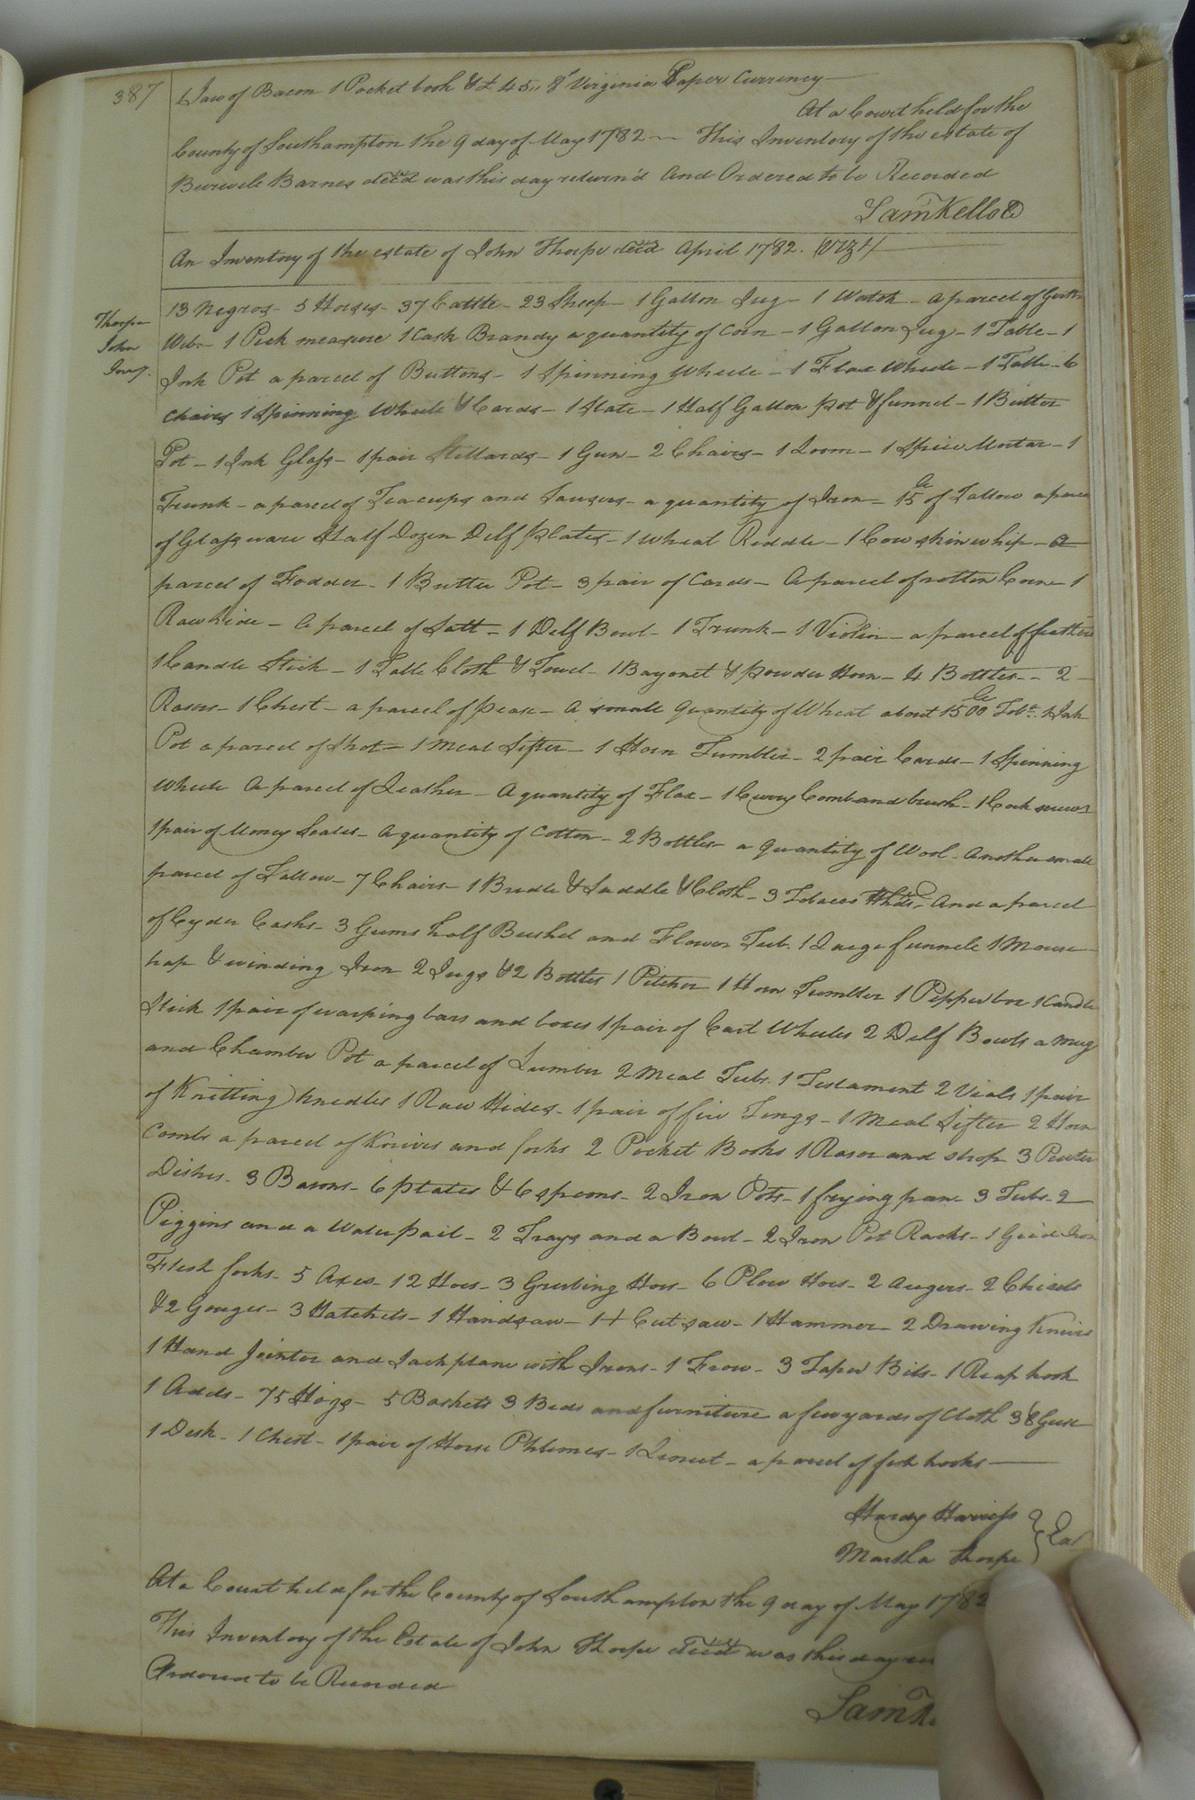 387
1 Jaw of Bacon 1 Pocket book & £ 45.. 8s Virginia Paper Currency
At a Court held for the
County of Southampton the 9 day of May 1782 — This Inventory of the estate of
Burwele Barnes decd was this day return'd And Ordered to be Recorded
Saml Kello
An Inventory of the estate of John Thorpe decd April 1782. (viz)
Thorpe
John
Invy.
13 Negros - 5 Horses - 37 Cattle - 23 Sheep - 1 Gallon Jug - 1 Watch - a parcel of
Web - 1 Peck measure 1 Cask Brandy a quantity of Corn - 1 Gallon Jug - 1 Table - 1
Ink Pot a parcel of Buttons - 1 Spinning Wheele - 1 Flax Wheele - 1 Table - 6
Chairs 1 Spinning Wheele & Cards - 1 Slate - 1 Half Gallon pot & funnel - 1 Butter
Pot - 1 Ink Glass - 1 pair Stillards - 1 Gun - 2 Chairs - 1 Loom - 1 Spice Mortar - 1
Trunk - a parcel of Teacups and Sausers - a quantity of Iron - 15 of Tallow a parcel
of Glass ware Half Dozen Delf plates - 1 Wheat Riddle - 1 Cow skin whip - a
parcel of Fodder - 1 Butter Pot - 3 pair of Cards - A parcel of rotten Corn - 1
Raw hide - A parcel of Salt - 1 Delf Bowl - 1 Trunk - 1 Violin - a parcel of feathers
1 Candle Stick - 1 Table Cloth & Towel - 1 Bayonet & powder Horn - 4 Bottles - 2
Rasors - 1 Chest - a parcel of pease - A small Quantity of Wheat about 1500 Tobo. 1 Ink
Pot a parcel of Shot - 1 Meal Sifter - 1 Horn Tumbler - 2 pair Cards - 1 Spinning
Wheele A parcel of Leather - A quantity of Flax - 1 Curry Comb and brush - 1 Cork screws
1 pair of Money Scales - A quantity of Cotton - 2 Bottles - a Quantity of Wool - Another small
parcel of Tallow - 7 Chairs - 1 Bridle & Saddle & Cloth - 3 Tobacco Hhds - And a parcel
of Cyder Casks - 3 Gums half Bushel and Flower Tub. 1 Large funnele 1 Mouse
trap & winding Iron 2 Jugs & 2 Bottles 1 Pitcher 1 Horn Tumbler 1 Pepper box 1 Candle
Stick 1 pair of warping bars and boxes 1 pair of Cart Wheeles 2 Delf Bowls a mug
and Chamber Pot a parcel of Lumber 2 Meal Tubs. 1 Testament 2 Vials 1 pair
of Knitting Needles 1 Raw Hides - 1 pair of fire Tongs - 1 Meal Sifter 2 Horn
Combs a parcel of Knives and forks 2 Pocket Books 1 Rasor and strop 3 Pewter
Dishes - 3 Basons - 6 plates & 6 spoons - 2 Iron Pots - 1 frying pan - 3 Tubs - 2
Piggins and a Water pail - 2 Trays and a Bowl - 2 Iron Pot Racks - 1 Grid Iron
Flesh forks - 5 Axes - 12 Hoes - 3 Grubing Hoes - 6 Plow Hoes - 2 Augers - 2 Chisels
& 2 Gouges - 3 Hatchets - 1 Handsaw - 1 + Cut saw - 1 Hammer - 2 Drawing Knives
1 Hand Jointer and Jack plane with Irons - 1 Frow - 3 Taper Bits - 1 Reap hook
1 Adds - 75 Hogs - 5 Baskets 3 Beds and furniture a few yards of Cloth 38 Geese
1 Desk - 1 Chest - 1 pair of Horse Phlemes - 1 - a parcel of fish hooks —
Hardy Harriss
Martha Thorpe
At a Court held for the County of Southampton the 9 day of May 1782
This Inventory of the Estate of John Thorpe decd was this day
Ordered to be Recorded
Saml K